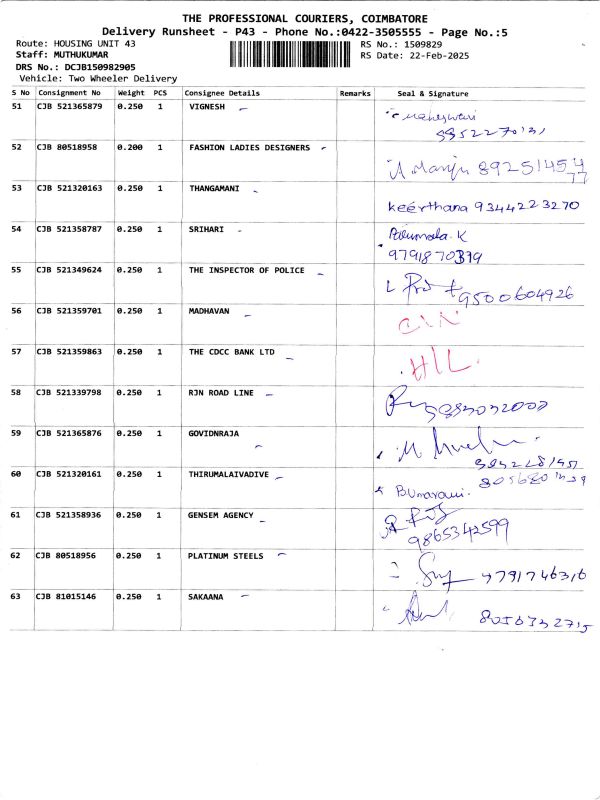 THE PROFESSIONAL COURIERS, COIMBATORE
Delivery Runsheet - P43 - Phone No.:0422-3505555 - Page No.:5
Route: HOUSING UNIT 43 RS No.: 1509829
Staff: MUTHUKUMAR RS Date: 22-Feb-2025
DRS No.: DCJB150982905
Vehicle: Two Wheeler Delivery
S No Consignment No Weight PCS Consignee Details Remarks Seal & Signature
51 CJB 521365879 0.250 1 VIGNESH Maheswari
52 CJB 80518958 0.200 1 FASHION LADIES DESIGNERS Manju 892514544
77
53 CJB 521320163 0.250 1 THANGAMANI keerthana 9344223270
54 CJB 521358787 0.250 1 SRIHARI K
9791870379
55 CJB 521349624 0.250 1 THE INSPECTOR OF POLICE 9500604926
56 CJB 521359701 0.250 1 MADHAVAN
57 CJB 521359863 0.250 1 THE CDCC BANK LTD
58 CJB 521339798 0.250 1 RJN ROAD LINE
59 CJB 521365876 0.250 1 GOVIDNRAJA
60 CJB 521320161 0.250 1 THIRUMALAIVADIVE
61 CJB 521358936 0.250 1 GENSEM AGENCY
9865342599
62 CJB 80518956 0.250 1 PLATINUM STEELS 9791746316
63 CJB 81015146 0.250 1 SAKAANA 8056732715